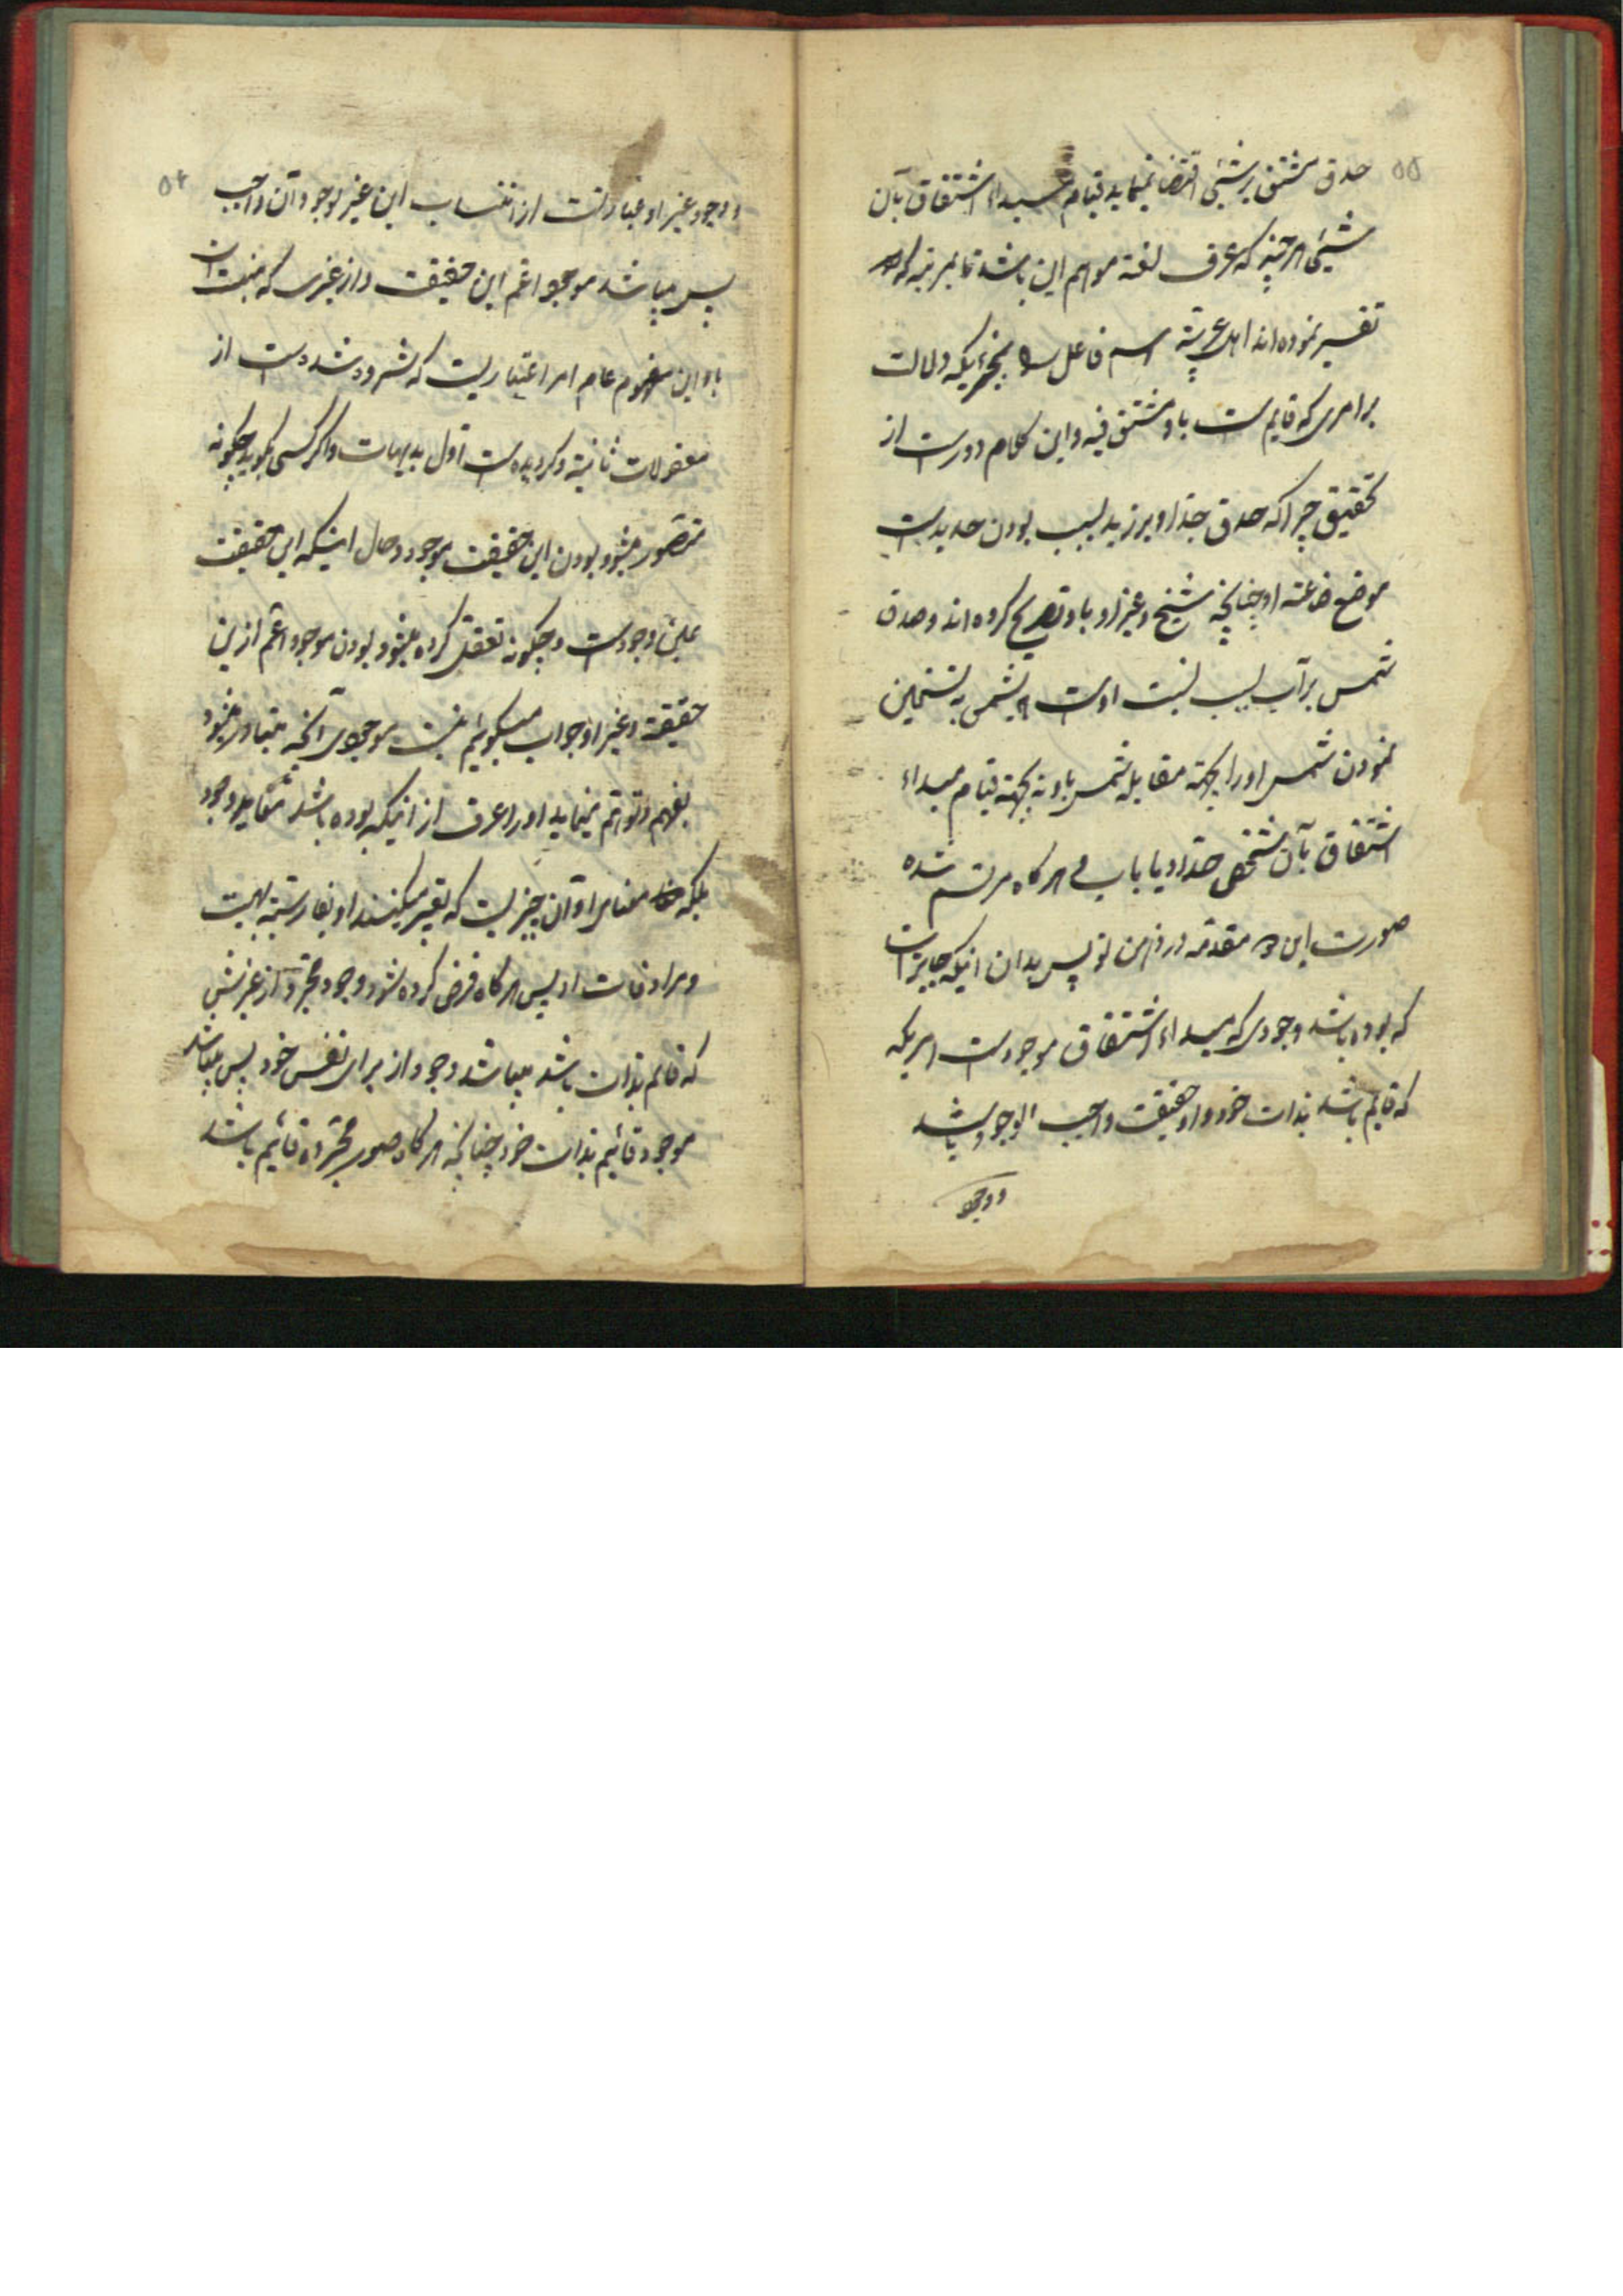 ۵۵
صدق مشتق بر شیئی اقتضا نمینماید قیام مبداء اشتقاق بآن
شیئی هر چند که عرف لغة موهم این باشد تا بمرتبه که
تفسیر نموده‌اند اهل عربیّة اسم فاعل را بچیزیکه دلالت
بر امری که قایم است باو مشتق فیه و این کلام دورست از
تحقیق چرا که صدق حدّاد بر زید بسبب بودن حدیدست
موضع صناعته او چنانچه شیخ و غیر او باو تصریح کرده‌اند و صدق
شمس بر آب بسبب نسبت اوست بشمس به تسخین
نمودن شمس او را بجهة مقابله شمس باو نه بجهة قیام مبداء
اشتقاق بآن شخص حدّاد یا باب هرگاه مرتسم شده
صورت این دو مقدّمه در ذهن تو پس بدان اینکه جایز است
که بوده باشد وجودی که مبداء اشتقاق موجودست امریکه
که قایم باشد بذات خود و او حقیقت واجب الوجود باشد
و وجود
۵۶
و وجود غیر او عبارتست از انتساب این غیر بوجود آن واجب
پس میباشد موجود اعم این حقیقت و از غیری که منتسب است
باو این مفهوم عام امر اعتباریست که شمرده شده است از
معقولات ثانیة و گردیده است اوّل بدیهیات و اگر کسی بگوید چگونه
متصوّر میشود بودن این حقیقت موجود و حال اینکه این حقیقت
عین وجودست و چگونه تعقّل کرده میشود بودن موجود اعم ازین
حقیقة و غیر او جواب میگوئیم نیست موجودی آنچه متبادر میشود
بفهم و توهّم مینماید او را عرف از اینکه بوده باشد مقابله وجود
بلکه معنای او آن چیزیست که تعبیر میکنند او بفارسیّه بهست
و مرادفات او پس هرگاه فرض کرده شود وجود مجرّد از غیر شیئی
که قایم بذات باشد میباشد وجود از برای نفس خود پس میباشد
موجود قائیم بذات خود چنانچه هرگاه صور مجرّده قائیم باشد